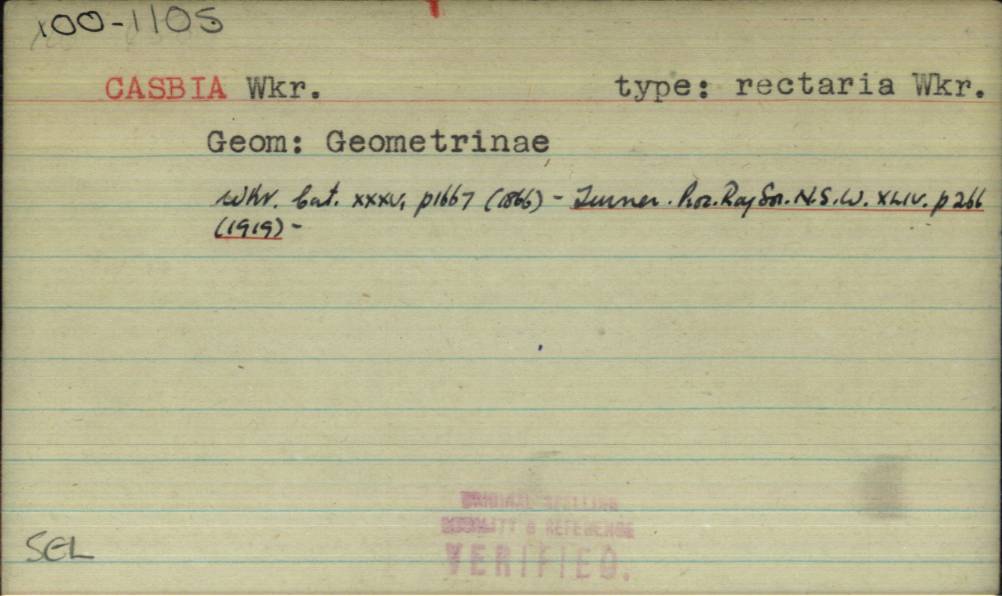 100-1105
CASBIA Wkr. type: rectaria Wkr.
Geom: Geometrinae
Wkr. Cat. XXXV, p1667 (1866) - Turner. Proc. Roy Soc. N.S.W. XLIV. p 266
(1919) -
ORIGINAL SPELLING
& REFERENCE
VERIFIED.
SEL